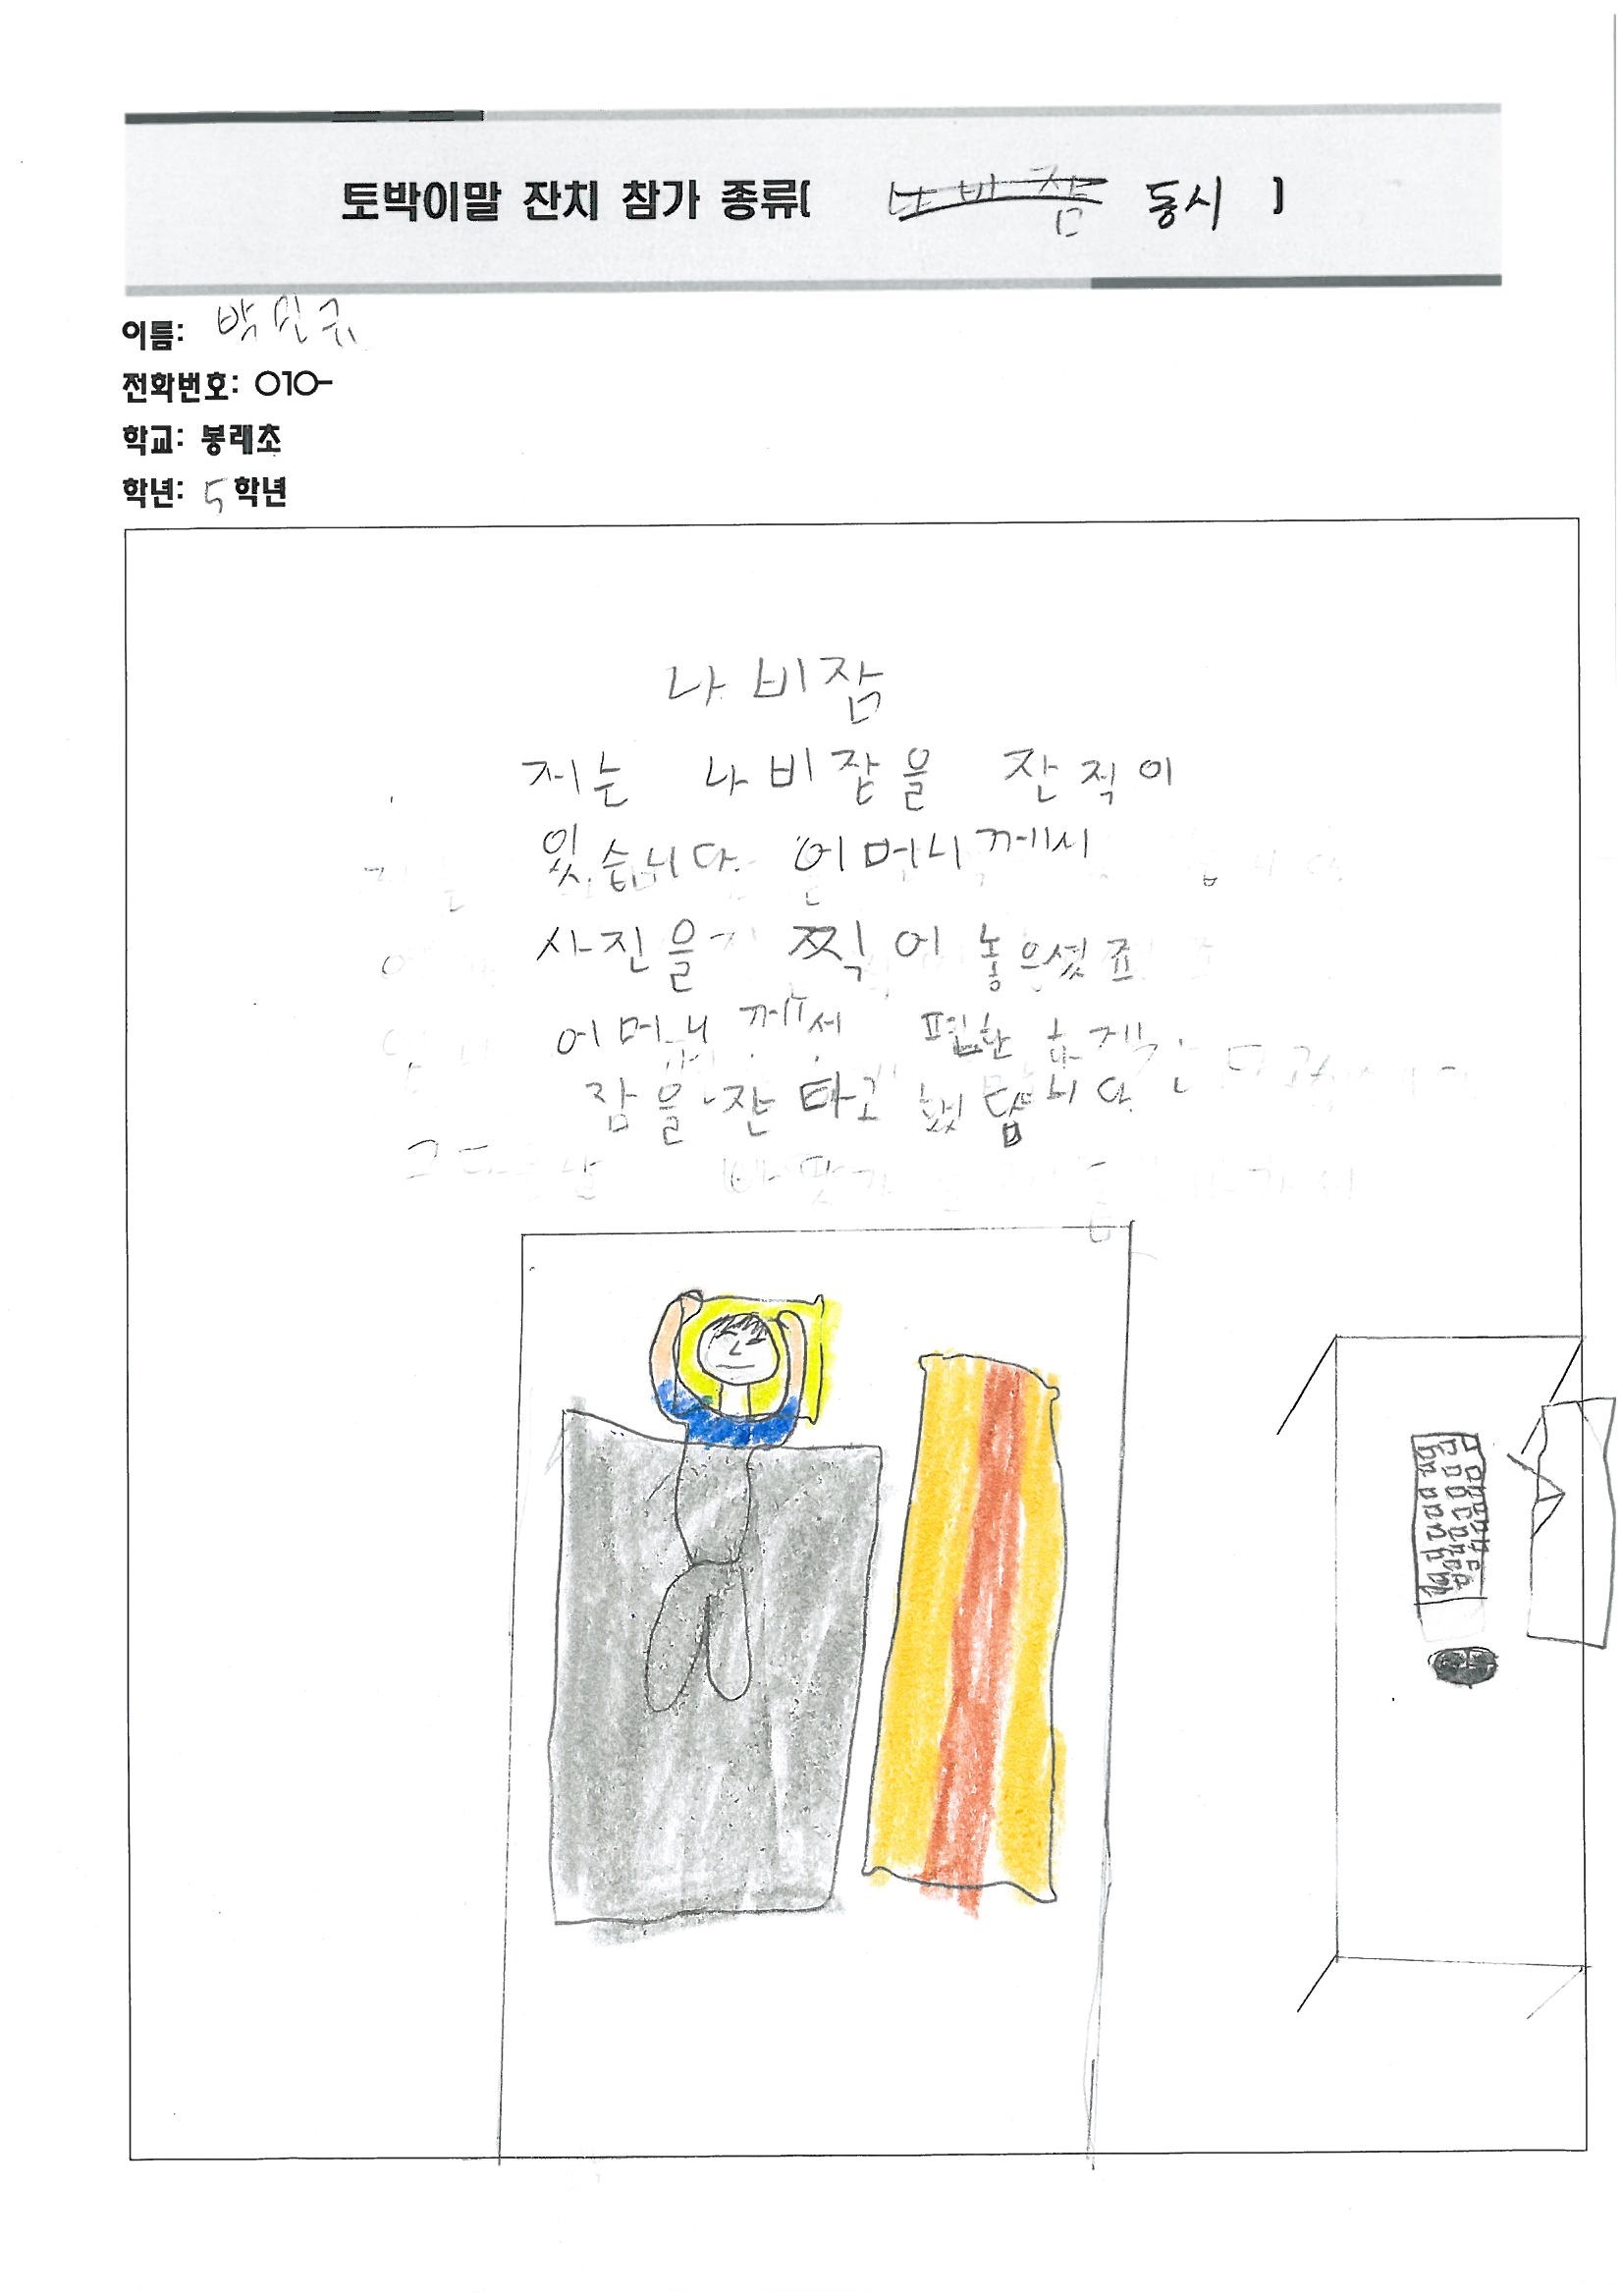 토박이말 잔치 참가 종류( 나비잠 동시 )
이름: 박민규
전화번호: 010-
학교: 봉래초
학년: 5학년
나비잠
저는 나비잠을 잔적이
있습니다. 어머니께서
사진을 찍어 놓으셨죠
어머니께서 편한
잠을 잔다고 했답니다.